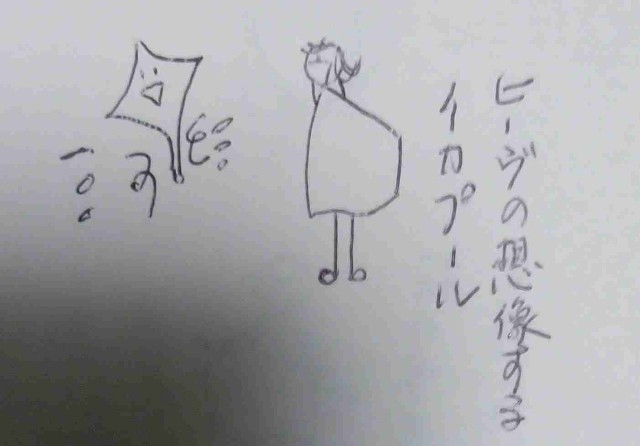 ヒーヴの想像する
イカプール